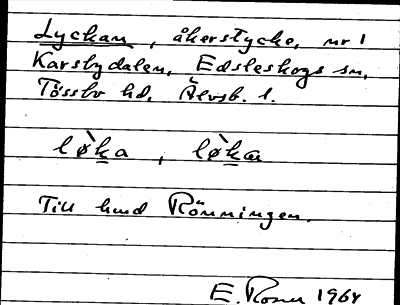 Lyckan, åkerstycke, nr 1
Karsbydalen, Edsleskogs sn,
Tössbo hd, Älvsb. l.
lø̀ka, lø̀kan
Till hmd Rönningen.
E. Rosner 1964